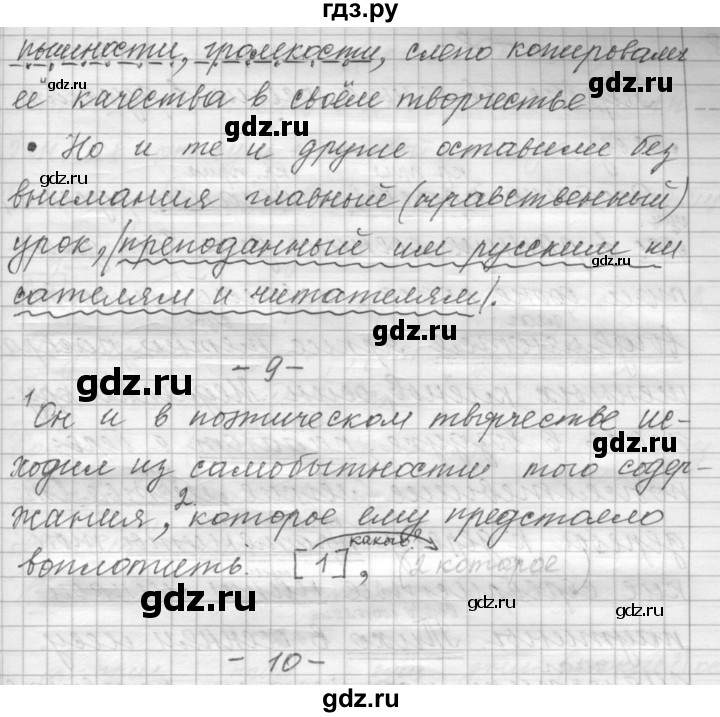 гдз.ру
пышности, громкости, слепо копировали
её качества в своём творчестве
• Но и те и другие оставили без
внимания главный (нравственный)
урок, |преподанный им русским пи
сателям и читателям|.
- 9 -
¹Он и в поэтическом творчестве ис-
ходил из самобытности того содер-
жания, ²которое ему предстояло
воплотить. [1], (2 которое )
какого?
- 10 -
gdz.ru
gdz.ru
gdz.ru
gdz.ru
gdz.ru
gdz.ru
gdz.ru
gdz.ru
gdz.ru
gdz.ru
gdz.ru